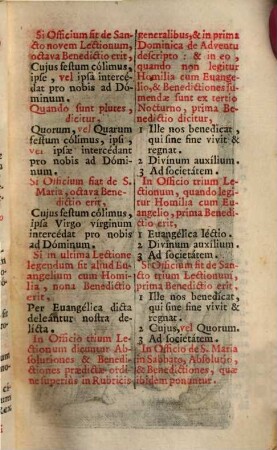 Si Officium sit de San-
cto novem Lectionum,
octava Benedictio erit,
Cujus festum cólimus,
ipse, vel ipsa intercé-
dat pro nobis ad Dó-
minum.
Quando sunt plures,
dicitur.
Quorum, vel Quarum
festum cólimus, ipsi,
vel ipsæ intercédant
pro nobis ad Dómi-
num.
Si Officium fiat de S.
Maria, octava Bene-
dictio erit,
Cujus festum cólimus,
ipsa Virgo vírginum
intercédat pro nobis
ad Dóminum.
Si in ultima Lectione
legendum sit aliud Eu-
angelium cum Homi-
lia, nona Benedictio
erit,
Per Euangélica dicta
deleántur nostra de-
lícta.
In Officio trium Le-
ctionum dicuntur Ab-
solutiones & Benedi-
ctiones prædictæ ordi-
ne superiùs in Rubricis
generalibus, & in prima
Dominica de Adventu
descripto: & in eo,
quando non legitur
Homilia cum Euange-
lio, & Benedictiones su-
mendæ sunt ex tertio
Nocturno, prima Be-
nedictio dicitur,
1 Ille nos benedícat,
qui sine fine vivit &
regnat.
2 Divínum auxílium.
3 Ad societátem.
In Officio trium Le-
ctionum, quando legi-
tur Homilia cum Eu-
angelio, prima Benedi-
ctio erit,
1 Euangélica léctio.
2 Divínum auxílium.
3 Ad societátem.
Si Officium sit de San-
cto trium Lectionum,
prima Benedictio erit,
1 Ille nos benedícat,
qui sine fine vivit &
regnat.
2 Cujus, vel Quorum.
3 Ad societátem.
In Officio de S. Maria
in Sabbato, Absolutio,
& Benedictiones, quæ
ibidem ponuntur.